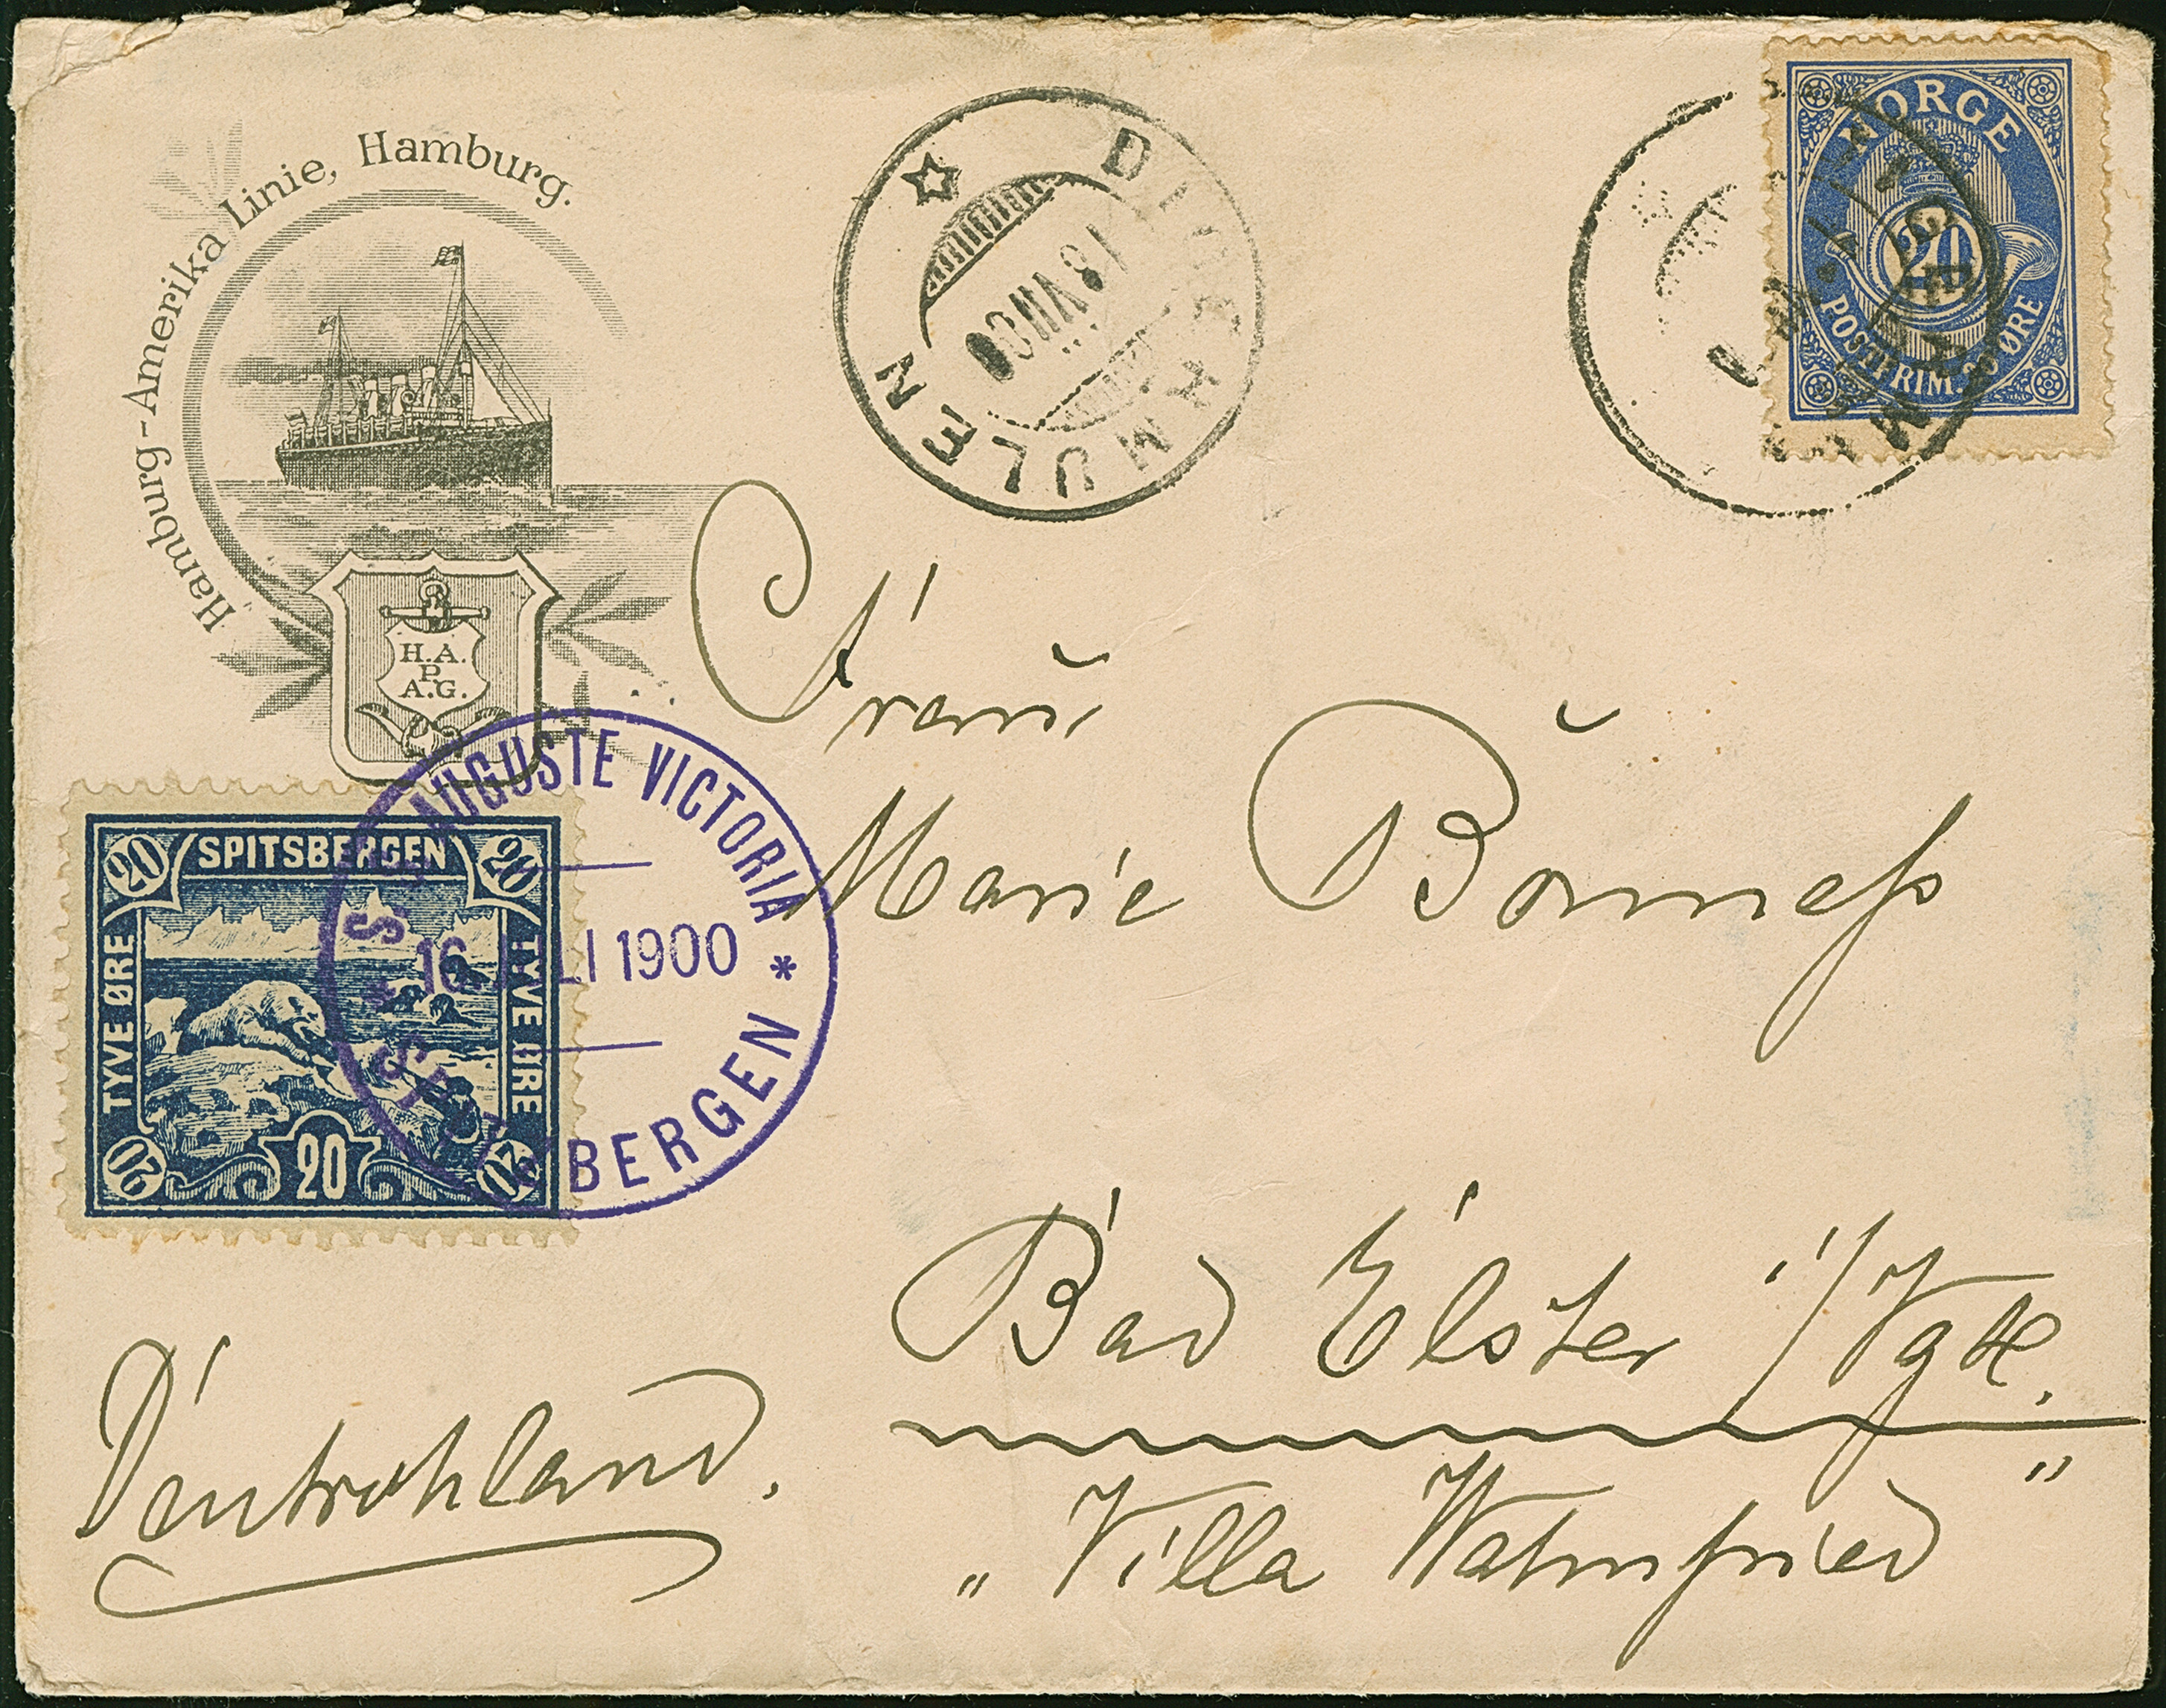 Hamburg-Amerika Linie, Hamburg.
H.A.
P.
A.G.
DIGERMULEN
18 VII 00
NORGE
20
POSTFRIM. 20 ØRE
DIGERMULEN
S. S. AUGUSTE VICTORIA
16 JULI 1900
* SPITSBERGEN *
20 SPITSBERGEN 20
TYVE ØRE
TYVE ØRE
20 20 20
Frau
Marie
Bad Elster i/Vgtl.
Deutschland.
„Villa Wahnfried"